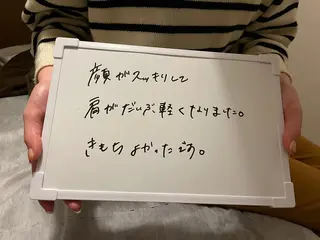 顔がスッキリして
肩がだいぶ軽くなりました。
きもちよかったです。